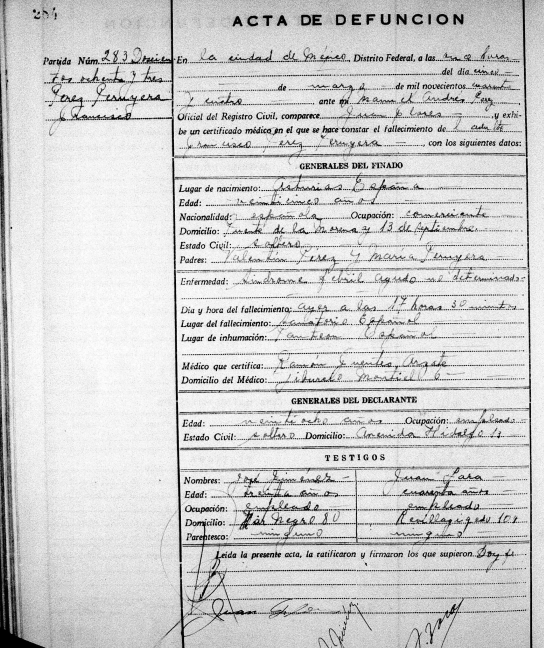 284
ACTA DE DEFUNCION
Partida Núm. 283 Doscien
tos ochenta y tres
Perez Peruyera
Francisco
En la ciudad de México, Distrito Federal, a las once horas
del día cinco
de marzo de mil novecientos cuarenta
y cuatro ante mí Manuel Andrés Paez
Oficial del Registro Civil, comparece Juan Flores y exhi-
be un certificado médico en el que se hace constar el fallecimiento de l adulto
Francisco Perez Peruyera, con los siguientes datos:
GENERALES DEL FINADO
Lugar de nacimiento: Asturias España
Edad: veinticinco años
Nacionalidad: española Ocupación: comerciante
Domicilio: Puente de la Morena y 13 de Septiembre
Estado Civil: soltero
Padres: Valentín Perez y María Peruyera
Enfermedad: Sindrome febril agudo no determinado
Día y hora del fallecimiento: ayer a las 17 horas 30 minutos
Lugar del fallecimiento: Sanatorio Español
Lugar de inhumación: Panteon Español
Médico que certifica: Ramón Fuentes
Domicilio del Médico: Montiel 6
GENERALES DEL DECLARANTE
Edad: veintiocho años Ocupación: empleado
Estado Civil: soltero Domicilio: Avenida Hidalgo
TESTIGOS
Nombres: José Jiménez Lara
Edad: treinta años cuarenta años
Ocupación: empleado empleado
Domicilio: Mar Negro 80 Revillagigedo
Parentesco: ninguno ninguno
Leída la presente acta, la ratificaron y firmaron los que supieron. Doy fe
Juan